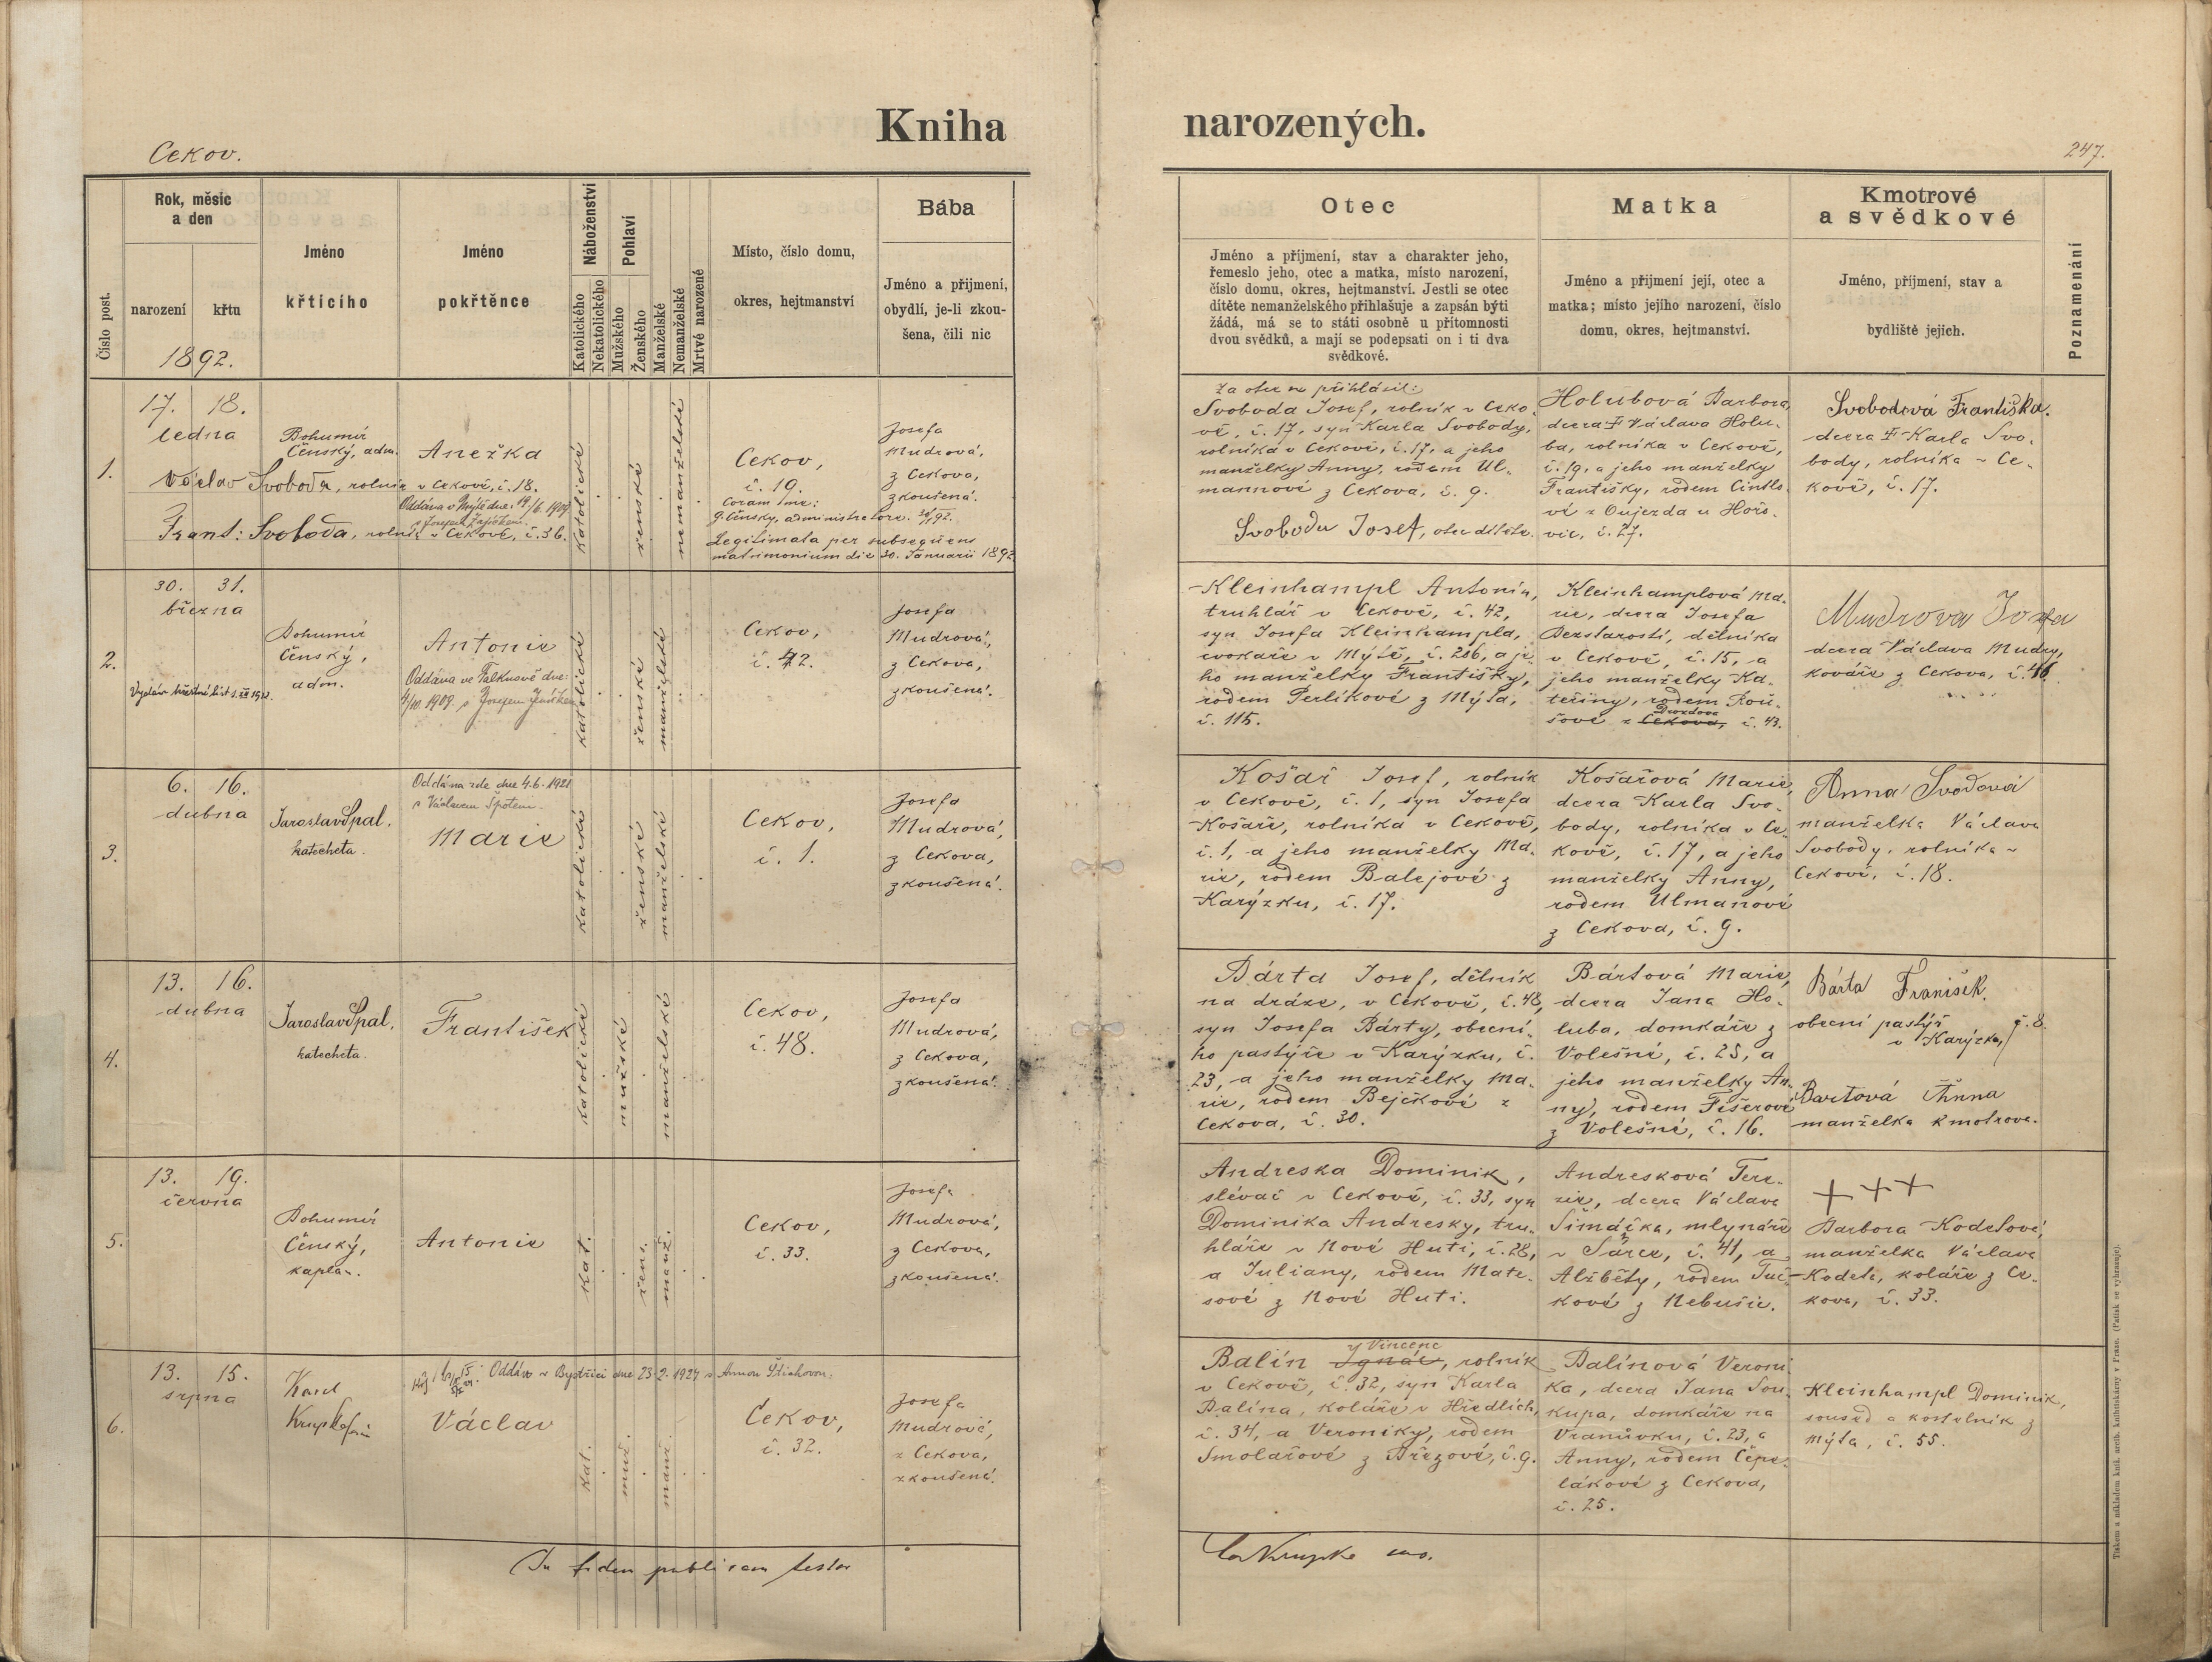 Kniha narozených.
Cekov.
247.
Rok, měsíc
a den
narození
křtu
1892.
Číslo post.
Jméno
křtícího
Jméno
pokřtěnce
Náboženství
Katolického
Nekatolického
Pohlaví
Mužského
Ženského
Manželské
Nemanželské
Mrtvé narozené
Místo, číslo domu,
okres, hejtmanství
Bába
Jméno a přijmení,
obydlí, je-li zkou-
šena, čili nic
Otec
Jméno a příjmení, stav a charakter jeho,
řemeslo jeho, otec a matka, místo narození,
číslo domu, okres, hejtmanství. Jestli se otec
dítěte nemanželského přihlašuje a zapsán býti
žádá, má se to státi osobně u přítomnosti
dvou svědků, a mají se podepsati on i ti dva
svědkové.
Matka
Jméno a přijmení její, otec a
matka; místo jejího narození, číslo
domu, okres, hejtmanství.
Kmotrové
a svědkové
Jméno, příjmení, stav a
bydliště jejich.
Poznamenání
1.
17. 18.
ledna
Bohumír
Čenský, adm.
Anežka
Václav Svoboda, rolník v Cekově, č. 18.
Oddána v Mýtě dne: 19/6. 1909
s Josefem
Frant: Svoboda, rolník v Cekově, č. 36.
katolické
ženské
nemanželské
Cekov,
č. 19.
Coram me:
G. Čenský, administratore.
Legitimata per subsequens
matrimonium die 30. Januarii 1892
Josefa
Mudrová,
z Cekova,
zkoušená.
Za otce se přihlásil:
Svoboda Josef, rolník v Ceko-
vě, č. 17, syn Karla Svobody,
rolníka v Cekově, č. 17, a jeho
manželky Anny, rodem Ul-
mannové z Cekova, č. 9.
Svoboda Josef, otec dítěte.
Holubová Barbora,
dcera Václava Holu-
ba, rolníka v Cekově,
č. 19, a jeho manželky
Františky, rodem Cintlo-
vé z Oujezda u Hořo-
vic, č. 27.
Svobodová Františka.
dcera Karla Svo-
body, rolníka v Ce-
kově, č. 17.
2.
30. 31.
března
Vydán křestní list
Bohumír
Čenský,
adm.
Antonie
Oddána ve Falknově dne:
1909. s Josefem
katolické
ženské
manželské
Cekov,
č. 42.
Josefa
Mudrová,
z Cekova,
zkoušená.
Kleinhampl Antonín,
truhlář v Cekově, č. 42,
syn Josefa Kleinhampla,
cvokaře v Mýtě, č. 286, a je-
ho manželky Františky,
rodem Perlíkové z Mýta,
č. 115.
Kleinhamplová Ma-
rie, dcera Josefa
Bezstarosti, dělníka
v Cekově, č. 15, a
jeho manželky Ka-
teřiny, rodem Rou-
sové z Cekova, Drozdova č. 43.
Mudrova Josefa
dcera Václava Mudry,
kováře z Cekova, č. 46.
3.
6. 16.
dubna
Jaroslav Spal.
katecheta.
Oddána zde dne 4.6. 1921
s Václavem Špotem.
Marie
katolické
ženské
manželské
Cekov,
č. 1.
Josefa
Mudrová,
z Cekova,
zkoušená.
Košař Josef, rolník
v Cekově, č. 1, syn Josefa
Košaře, rolníka v Cekově,
č. 1, a jeho manželky Ma-
rie, rodem Balejové z
Karýzku, č. 17.
Košařová Marie,
dcera Karla Svo-
body, rolníka v Ce-
kově, č. 17, a jeho
manželky Anny,
rodem Ulmanové
z Cekova, č. 9.
Anna Svodová
manželka Václava
Svobody, rolníka v
Cekově, č. 18.
4.
13. 16.
dubna
Jaroslav Spal.
katecheta.
František
katolické
mužské
manželské
Cekov,
č. 48.
Josefa
Mudrová,
z Cekova,
zkoušená.
Bárta Josef, dělník
na dráze, v Cekově, č. 48,
syn Josefa Bárty, obecní-
ho pastýře v Karýzku, č.
23, a jeho manželky Ma-
rie, rodem Bejčkové z
Cekova, č. 30.
Bártová Marie,
dcera Jana Ho-
luba, domkáře z
Volešné, č. 25, a
jeho manželky An-
ny, rodem Fišerové
z Volešné, č. 16.
Bárta Franišek.
obecní pastýř
v Karýzku, č. 8.
Bartová Anna
manželka kmotrova.
5.
13. 19.
června
Bohumír
Čenský,
kaplan.
Antonie
kat.
žens.
manž.
Cekov,
č. 33.
Josefa
Mudrová,
z Cekova,
zkoušená.
Andreska Dominik,
slévač v Cekově, č. 33, syn
Dominika Andresky, tru-
hláře v Nové Huti, č. 28,
a Juliany, rodem Mate-
sové z Nové Huti.
Andresková Tere-
zie, dcera Václava
Šimáčka, mlynáře
v Šárce, č. 41, a
Alžběty, rodem Tuč-
kové z Nebušic.
+++
Barbora Kodetová,
manželka Václava
Kodeta, koláře z Ce-
kova, č. 33.
6.
13. 15.
srpna
Karel
Krupka
Oddán v Bystřici dne 23.2. 1924 s Annou Štichovou.
Václav
kat.
muž.
manž.
Cekov,
č. 32.
Josefa
Mudrové,
z Cekova,
zkoušené.
Balín Ignác, Vincenc rolník
v Cekově, č. 32, syn Karla
Balína, koláře v Hředlích,
č. 34, a Veroniky, rodem
Smolařové z Březové, č. 9.
Balínová Veroni-
ka, dcera Jana Sou-
kupa, domkáře na
Vranůvku, č. 23, a
Anny, rodem Čepe-
lákové z Cekova,
č. 25.
Kleinhampl Dominik,
soused a kostelník z
Mýta, č. 55.
In fidem publicam testor
Krupka
Tiskem a nákladem knih. arcib. knihtiskárny v Praze. (Patisk se vyhrazuje).